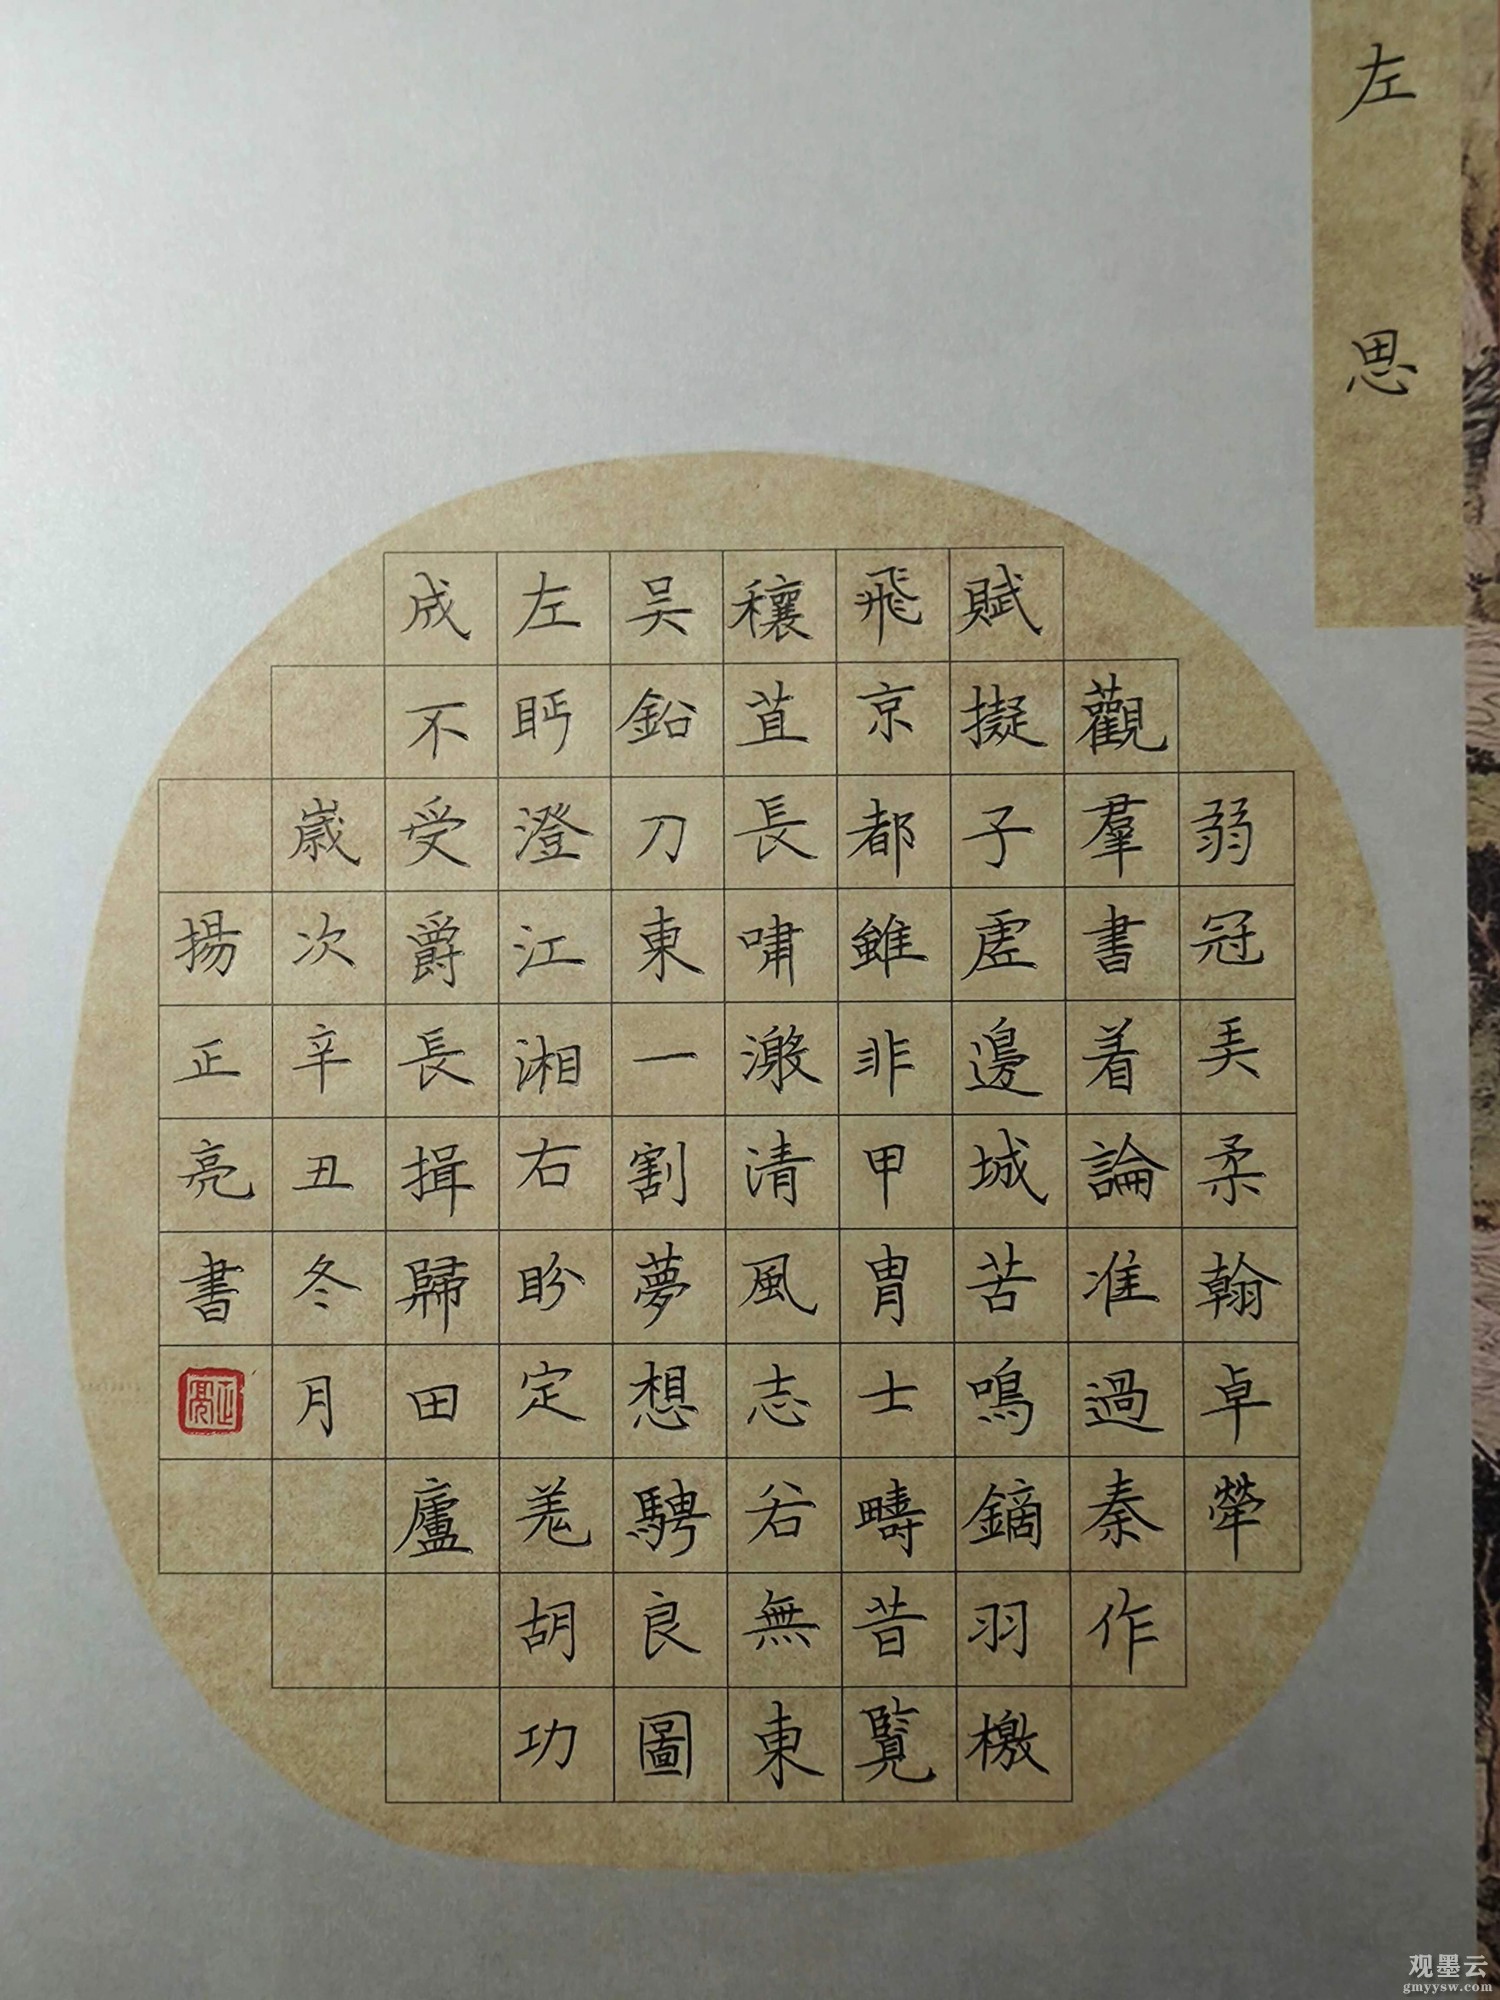 左思
弱冠弄柔翰卓犖
觀羣書着論准過秦作
賦擬子虛邊城苦鳴鏑羽檄
飛京都雖非甲胄士疇昔覽
穰苴長嘯激清風志若無東
吴鉛刀東一割夢想騁良圖
左眄澄江湘右盼定羌胡功
成不受爵長揖歸田廬
歲次辛丑冬月
揚正亮書
正亮
观墨云
gmyysw.com